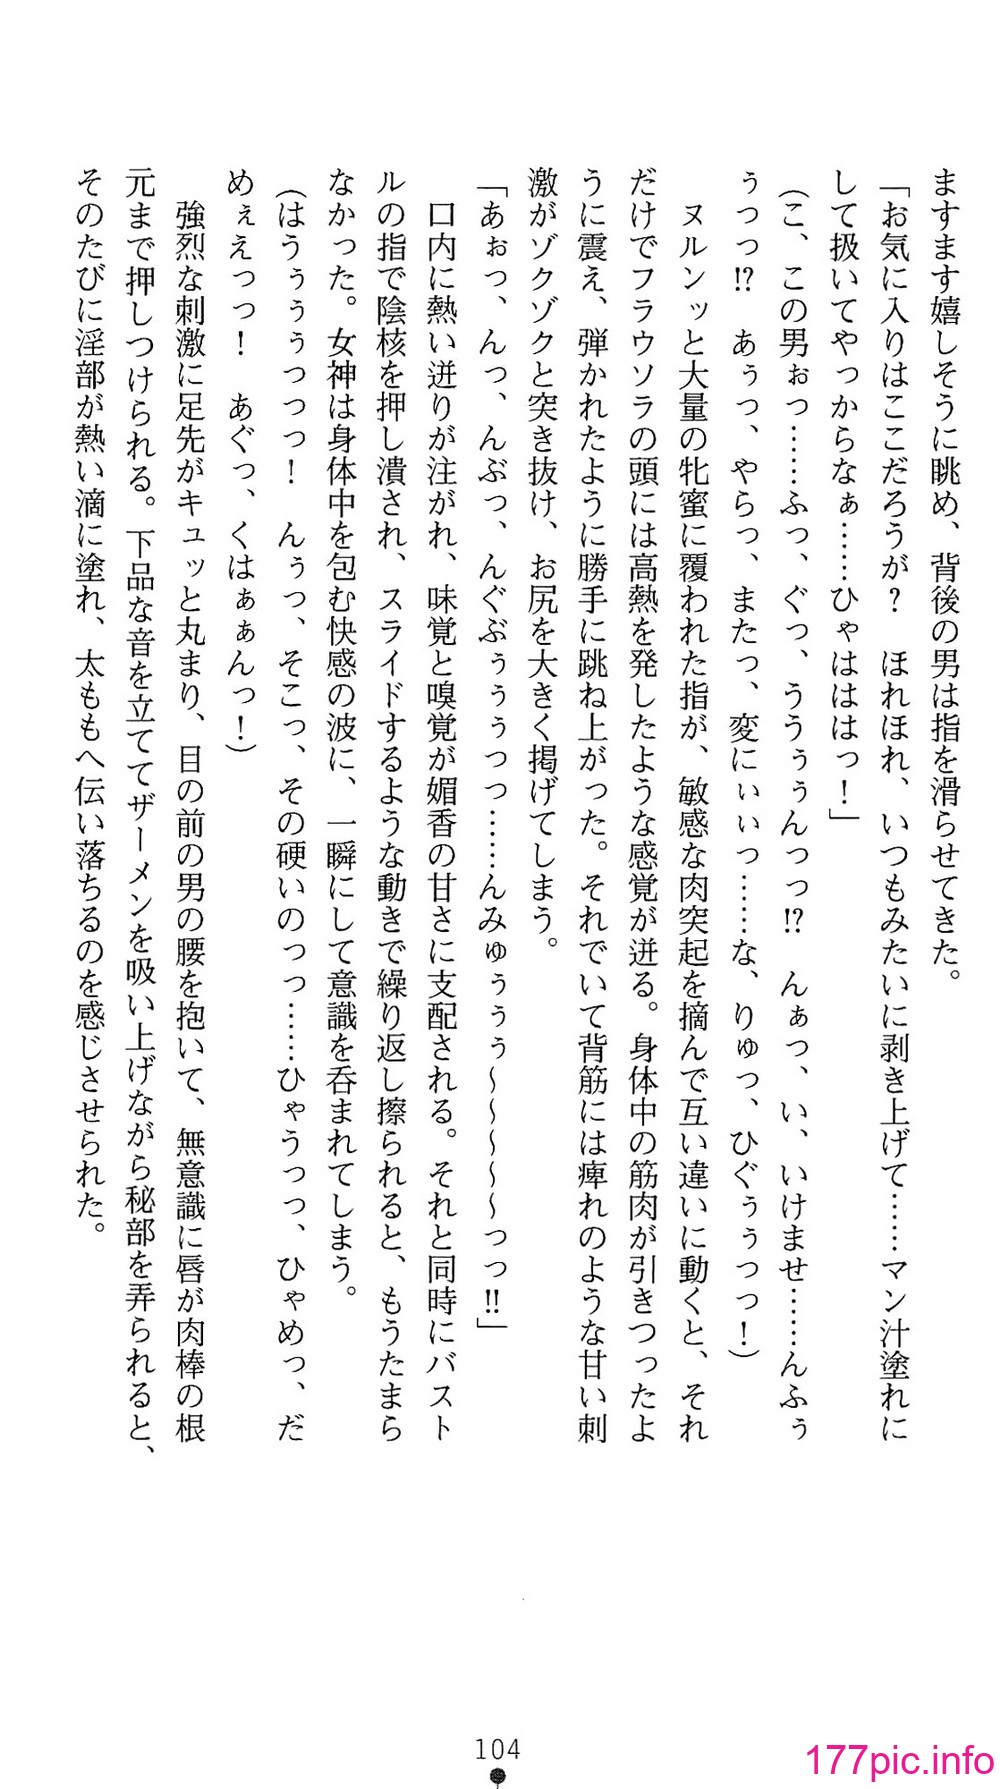 ますます嬉しそうに眺め、背後の男は指を滑らせてきた。
「お気に入りはここだろうが？　ほれほれ、いつもみたいに剥き上げて……マン汁塗れに
して扱いてやっからなぁ……ひゃはははっ！」
（こ、この男ぉっ……ふっ、ぐっ、ううぅぅんっっ!?　んぁっ、い、いけませ……んふぅ
ぅっっ!?　あぅっ、やらっ、またっ、変にぃぃっ……な、りゅっ、ひぐぅぅっっ！）
　ヌルンッと大量の牝蜜に覆われた指が、敏感な肉突起を摘んで互い違いに動くと、それ
だけでフラウソラの頭には高熱を発したような感覚が迸る。身体中の筋肉が引きつったよ
うに震え、弾かれたように勝手に跳ね上がった。それでいて背筋には痺れのような甘い刺
激がゾクゾクと突き抜け、お尻を大きく掲げてしまう。
「あぉっ、んっ、んぶっ、んぐぶぅぅぅっっ……んみゅぅぅぅ～～～～～っっ!!」
　口内に熱い迸りが注がれ、味覚と嗅覚が媚香の甘さに支配される。それと同時にバスト
ルの指で陰核を押し潰され、スライドするような動きで繰り返し擦られると、もうたまら
なかった。女神は身体中を包む快感の波に、一瞬にして意識を呑まれてしまう。
（はうぅぅぅっっっ！　んぅっ、そこっ、その硬いのっっ……ひゃうっっ、ひゃめっ、だ
めぇえっっ！　あぐっ、くはぁぁんっ！）
　強烈な刺激に足先がキュッと丸まり、目の前の男の腰を抱いて、無意識に唇が肉棒の根
元まで押しつけられる。下品な音を立ててザーメンを吸い上げながら秘部を弄られると、
そのたびに淫部が熱い滴に塗れ、太ももへ伝い落ちるのを感じさせられた。
104
177pic.info